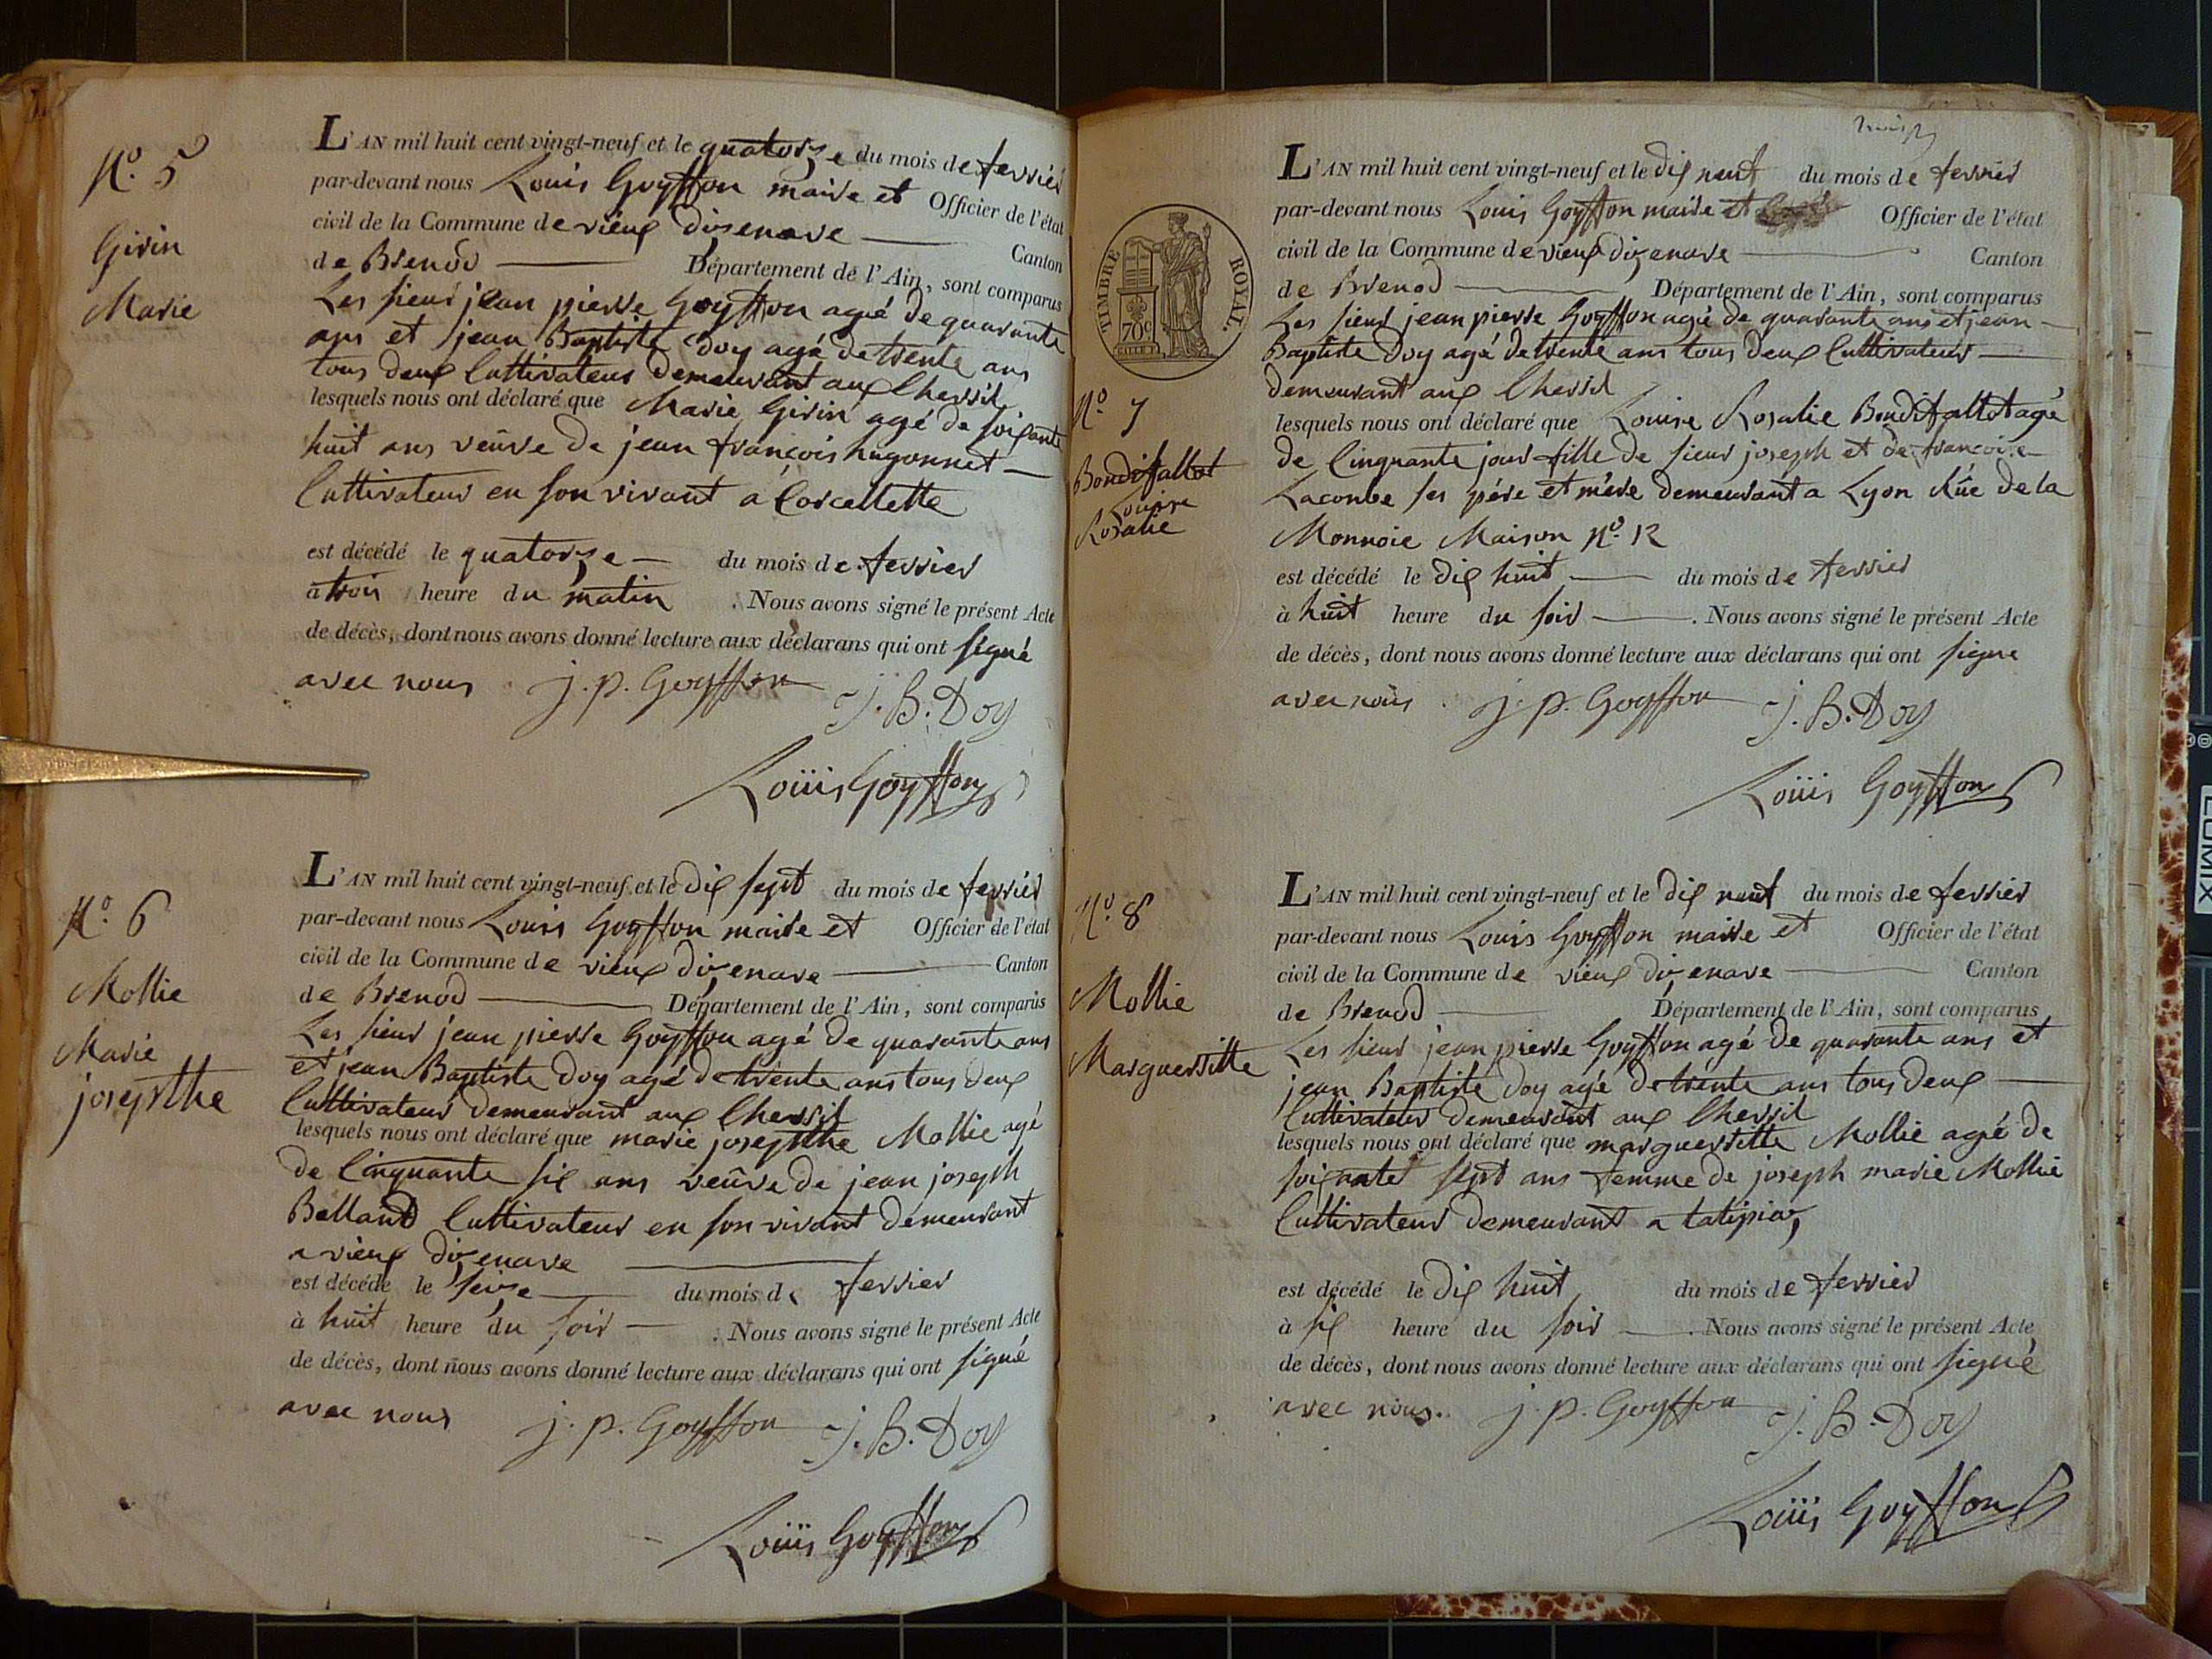 N.o 5
Girin
Marie
L'AN mil huit cent vingt-neuf et le quatorze du mois de fevrier
par-devant nous Louis Goyffon maire et Officier de l'état
civil de la Commune de vieux dizenave Canton
de Brenod Département de l'Ain, sont comparus
Les sieur jean pierre Goyffon agé de quarante
ans et jean Baptiste Doy agé de trente ans
tous deux Cultivateur demeurant aux Chevril
lesquels nous ont déclaré que Marie Girin agé de soixante
huit ans veûve de jean françois hugonnet
Cultivateur en son vivant a Corcellette
est décédé le quatorze du mois de fevrier
à trois heure du matin . Nous avons signé le présent Acte
de décès, dont nous avons donné lecture aux déclarans qui ont signé
avec nous j. p. Goyffon J. B. Doy
Loüis Goyffon
N.o 6
Mollie
Marie
josepthe
L'AN mil huit cent vingt-neuf et le dix sept du mois de fevrier
par-devant nous Louis Goyffon maire et Officier de l'état
civil de la Commune de vieux dizenave Canton
de Brenod Département de l'Ain, sont comparus
Les sieur jean pierre Goyffon agé de quarante ans
et jean Baptiste Doy agé de trente ans tous deux
Cultivateur demeurant aux Chevril
lesquels nous ont déclaré que marie josepthe Mollie agé
de Cinquante six ans veûve de jean joseph
Balland Cultivateur en son vivant demeurant
a vieux dizenave
est décédé le seize du mois de fevrier
à huit heure du soir . Nous avons signé le présent Acte
de décès, dont nous avons donné lecture aux déclarans qui ont signé
avec nous j. p. Goyffon J. B. Doy
Loüis Goyffon
TIMBRE ROYAL.
70c
N.o 7
Bonditallot
Louise
Rosalie
L'AN mil huit cent vingt-neuf et le dix neuf du mois de fevrier
par-devant nous Louis Goyffon maire et Officier de l'état
civil de la Commune de vieux dizenave Canton
de Brenod Département de l'Ain, sont comparus
Les sieur jean pierre Goyffon agé de quarante ans et jean
Baptiste Doy agé de trente ans tous deux Cultivateur
demeurant aux Chevril
lesquels nous ont déclaré que Louise Rosalie Bonditallot agé
de Cinquante jour fille de sieur joseph et de françoise
Laconbe ses pére et mère demeurant a Lyon Rûe de la
Monnoie Maison N.o 12
est décédé le dix huit du mois de fevrier
à huit heure du soir . Nous avons signé le présent Acte
de décès, dont nous avons donné lecture aux déclarans qui ont signe
avec noùs j. p. Goyffon J. B. Doy
Loüis Goyffon
N.o 8
Mollie
Marguerritte
L'AN mil huit cent vingt-neuf et le dix neuf du mois de fevrier
par-devant nous Louis Goyffon maire et Officier de l'état
civil de la Commune de vieux dizenave Canton
de Brenod Département de l'Ain, sont comparus
Les sieur jean pierre Goyffon agé de quarante ans et
jean Baptiste doy agé de trente ans tous deux
Cultivateur demeurant aux Chevril
lesquels nous ont déclaré que marguerritte Mollie agé de
soixante sept ans femme de joseph marie Mollie
Cultivateur demeurant a
est décédé le dix huit du mois de fevrier
à six heure du soir . Nous avons signé le présent Acte
de décès, dont nous avons donné lecture aux déclarans qui ont signé
avec nous. j. p. Goyffon J. B. Doy
Loüis Goyffon
LUMIX